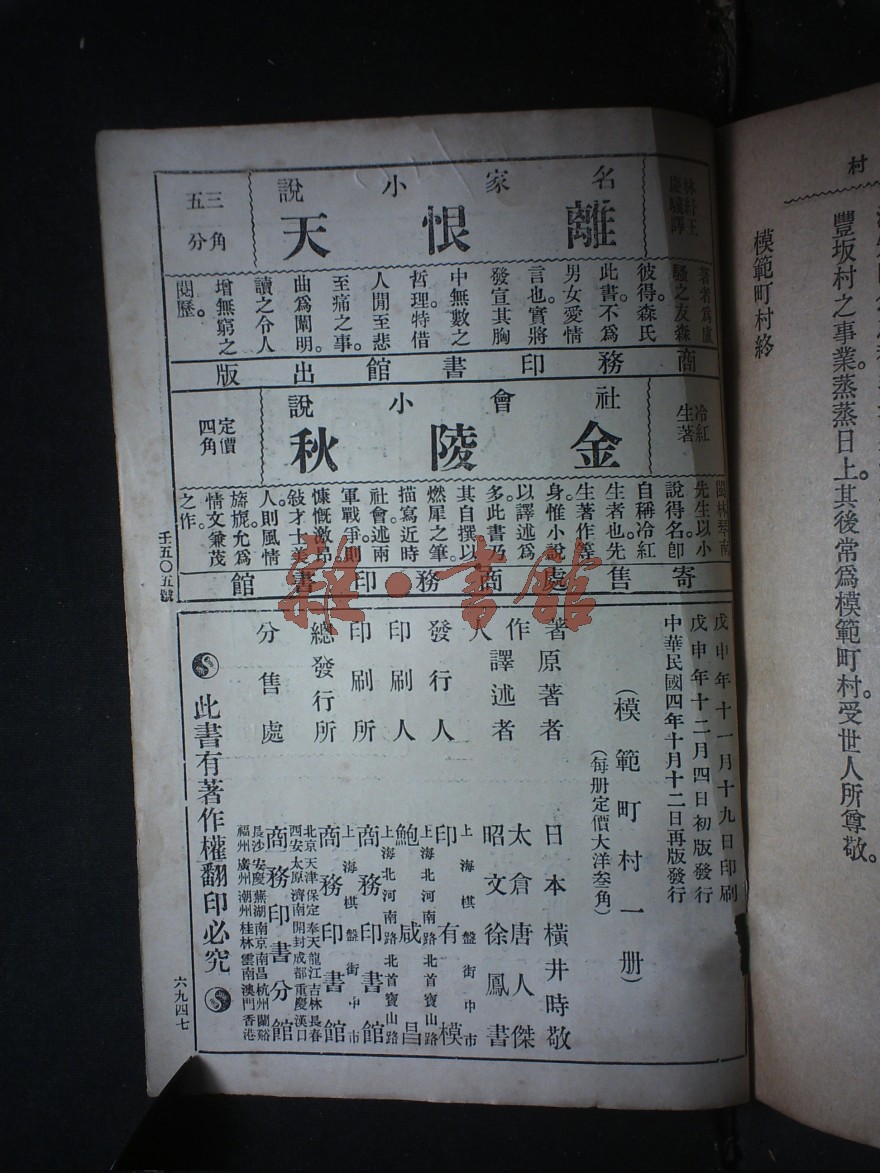 村
豐坂村之事業。蒸蒸日上。其後常爲模範町村。受世人所尊敬。
模範町村終
林紓王
慶驥譯
名家小說
離恨天
三角
五分
著者爲盧
騷之友森
彼得。森氏
此書。不爲
男女愛情
言也。實將
發宣其胸
中無數之
哲理。特借
人閒至悲
至痛之事。
曲爲闡明。
讀之令人
增無窮之
閱歷。
商務印書館出版
冷紅
生著
社會小說
金陵秋
定價
四角
閩林琴南
先生以小
說得名。卽
自稱冷紅
生者也。先
生著作等
身。惟小說
以譯述爲
多。此書乃
其自撰。以
燃犀之筆。
描寫近時
社會。述兩
軍戰爭。則
慷慨激昂。
敍才士美
人。則風情
旖旎。允爲
情文兼茂
之作。
寄售處商務印書館
壬五〇五號
戊申年十一月十九日印刷
戊申年十二月四日初版發行
中華民國四年十月十二日再版發行
(模範町村一册)
(每册定價大洋叁角)
著作人
原著者 日本橫井時敬
譯述者 太倉唐人傑
昭文徐鳳書
發行人 上海棋盤街中市
印有模
印刷人 上海北河南路北首寶山路
鮑咸昌
印刷所 上海北河南路北首寶山路
商務印書館
總發行所 上海棋盤街中市
商務印書館
分售處 北京天津保定奉天龍江吉林長春
西安太原濟南開封成都重慶漢口
商務印書分館
長沙安慶蕪湖南京南昌杭州蘭谿
福州廣州潮州桂林雲南澳門香港
此書有著作權翻印必究
六九四七
雜·書館